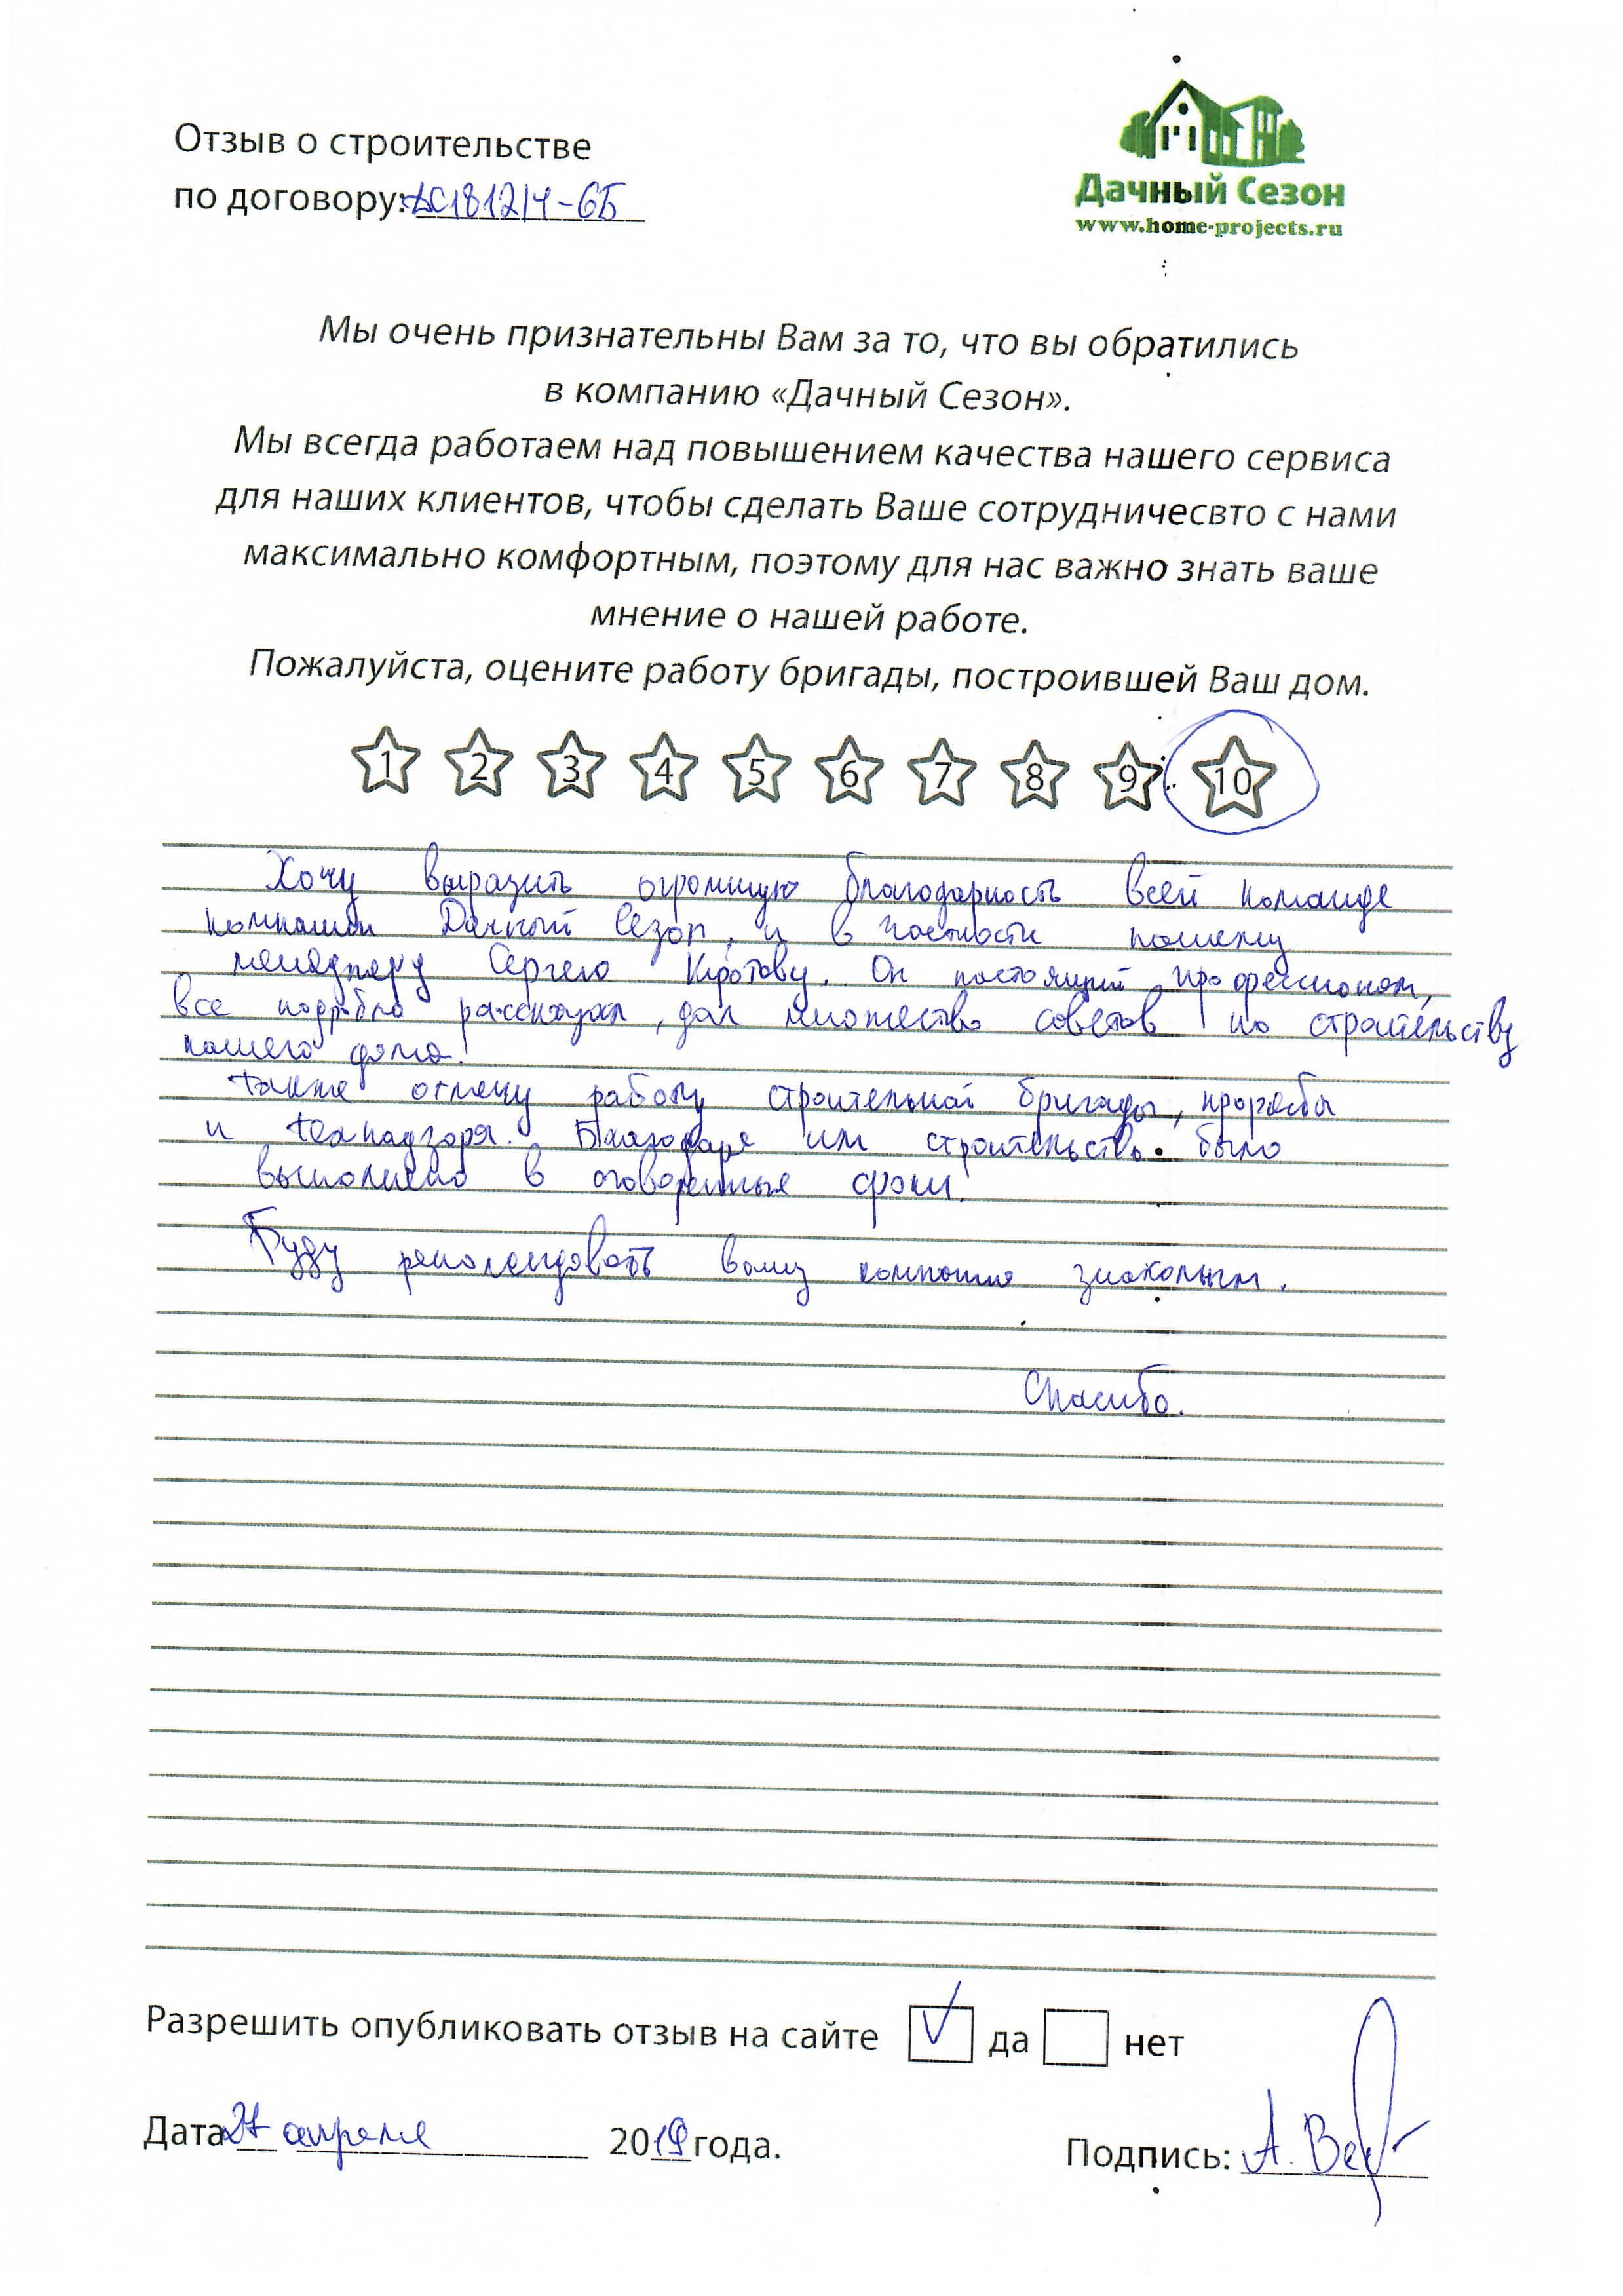 Отзыв о строительстве
по договору: ДС181214-6Б
Дачный Сезон
www.home-projects.ru
Мы очень признательны Вам за то, что вы обратились
в компанию «Дачный Сезон».
Мы всегда работаем над повышением качества нашего сервиса
для наших клиентов, чтобы сделать Ваше сотрудничесвто с нами
максимально комфортным, поэтому для нас важно знать ваше
мнение о нашей работе.
Пожалуйста, оцените работу бригады, построившей Ваш дом.
1 2 3 4 5 6 7 8 9 10
Хочу выразить огромную благодарность всей команде
компании Дачный Сезон, и в частности нашему
менеджеру Сергею Кротову. Он настоящий профессионал,
все подробно рассказал, дал множество советов по строительству
нашего дома.
Также отмечу работу строительной бригады, прораба
и технадзора. Благодаря им строительство было
выполнено в оговоренные сроки.
Буду рекомендовать вашу компанию знакомым.
Спасибо.
Разрешить опубликовать отзыв на сайте да нет
Дата 27 апреля 2019 года.
Подпись: А. Ве